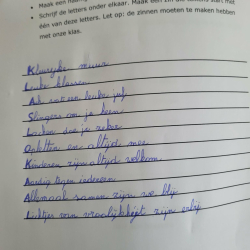 • Maak een naam
• Schrijf de letters onder elkaar. Maak een zin die
één van deze letters. Let op: de zinnen moeten te maken hebben
met onze klas.
Kleurrijke muur
Leuke klassen
Ah wat een leuke juf
Slingers om je heen
Lachen doe je zeker
Opletten ens altijd mee
Kinderen zijn altijd welkom
Aardig tegen iedereen
Allemaal samen zijn we blij
Liefjes van vrolijkheijt zijn erbij